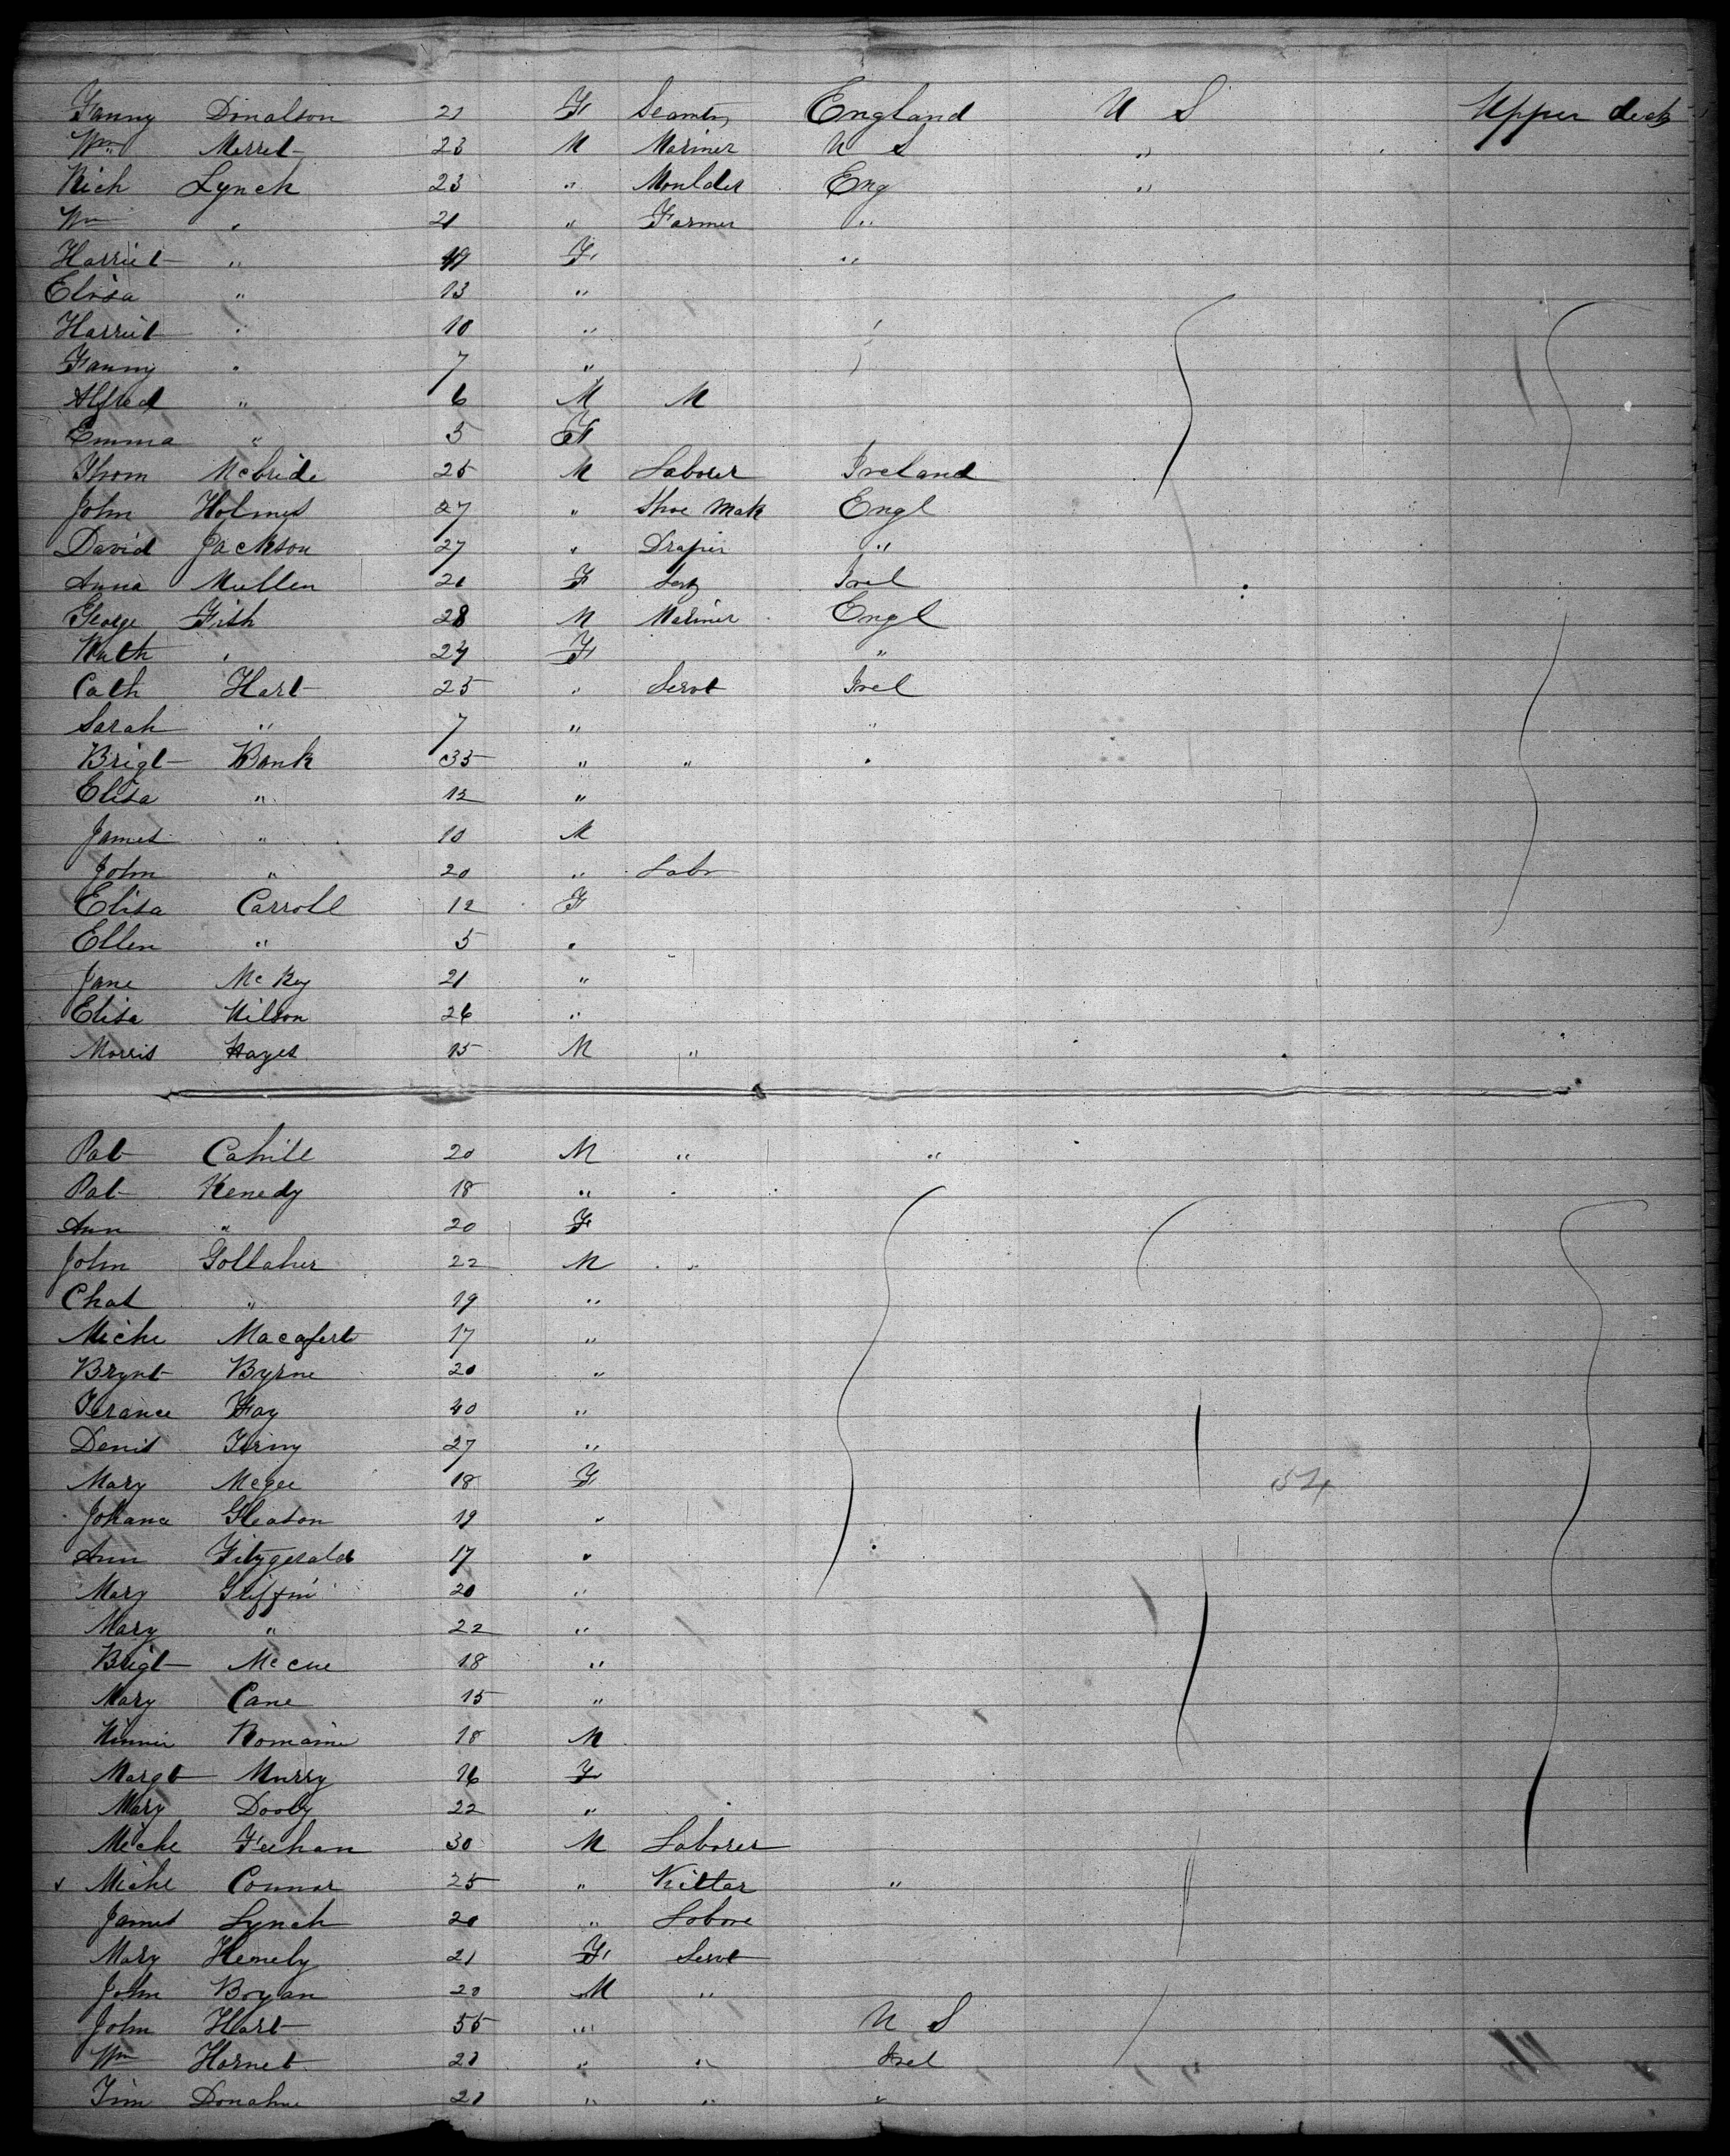 Fanny Donalson 21 F England U S Upper deck
Wm Merret 23 M Mariner U S "
Rich Lynch 23 " Moulder Eng "
Wm " 21 " Farmer "
Harriet " 49 F "
Elisa " 13 "
Harriet " 10 "
Fanny " 7 "
Alfred " 6 M M
Emma " 5 F
Thom Mcbride 25 M Laborer Ireland
John Holmes 27 " Shoe Mak Engl
David Jackson 27 " Draper "
Anna Mullen 21 F Irel
George Fish 28 M Mariner Engl
Ruth " 24 F "
Cath Hart 25 " Servt Irel
Sarah " 7 " "
Brigt Bank 35 " " "
Elisa " 12 "
James " 10 M
John " 20 " Labr
Elisa Carroll 12 F
Ellen " 5 "
Jane McKey 21 "
Elisa Wilson 26 "
Morris Hayes 15 M "
Pat Cahill 20 M " "
Pat Kenedy 18 " "
Ann " 20 F
John Gollaher 22 M "
Chat " 19 "
Miche Macafert 17 "
Brynt Byrne 20 "
Terance Fay 40 "
Denis Tirny 27 "
Mary Megee 18 F 54
Johana Gleason 19 "
Ann Fitzgerald 17 "
Mary Griffin 20 "
Mary " 22 "
Brigt Mccue 18 "
Mary Cane 15 "
Romaine 18 M
Margt Murry 16 F
Mary Dooly 22 "
Miche Feehan 30 M Laborer
x Miche Connor 25 " "
James Lynch 20 " Labore
Mary Henely 21 F Servt
John Boyan 20 M "
John Hart 55 " U S
Wm Hornet 21 " " Irel
Tim Donahue 21 " " "